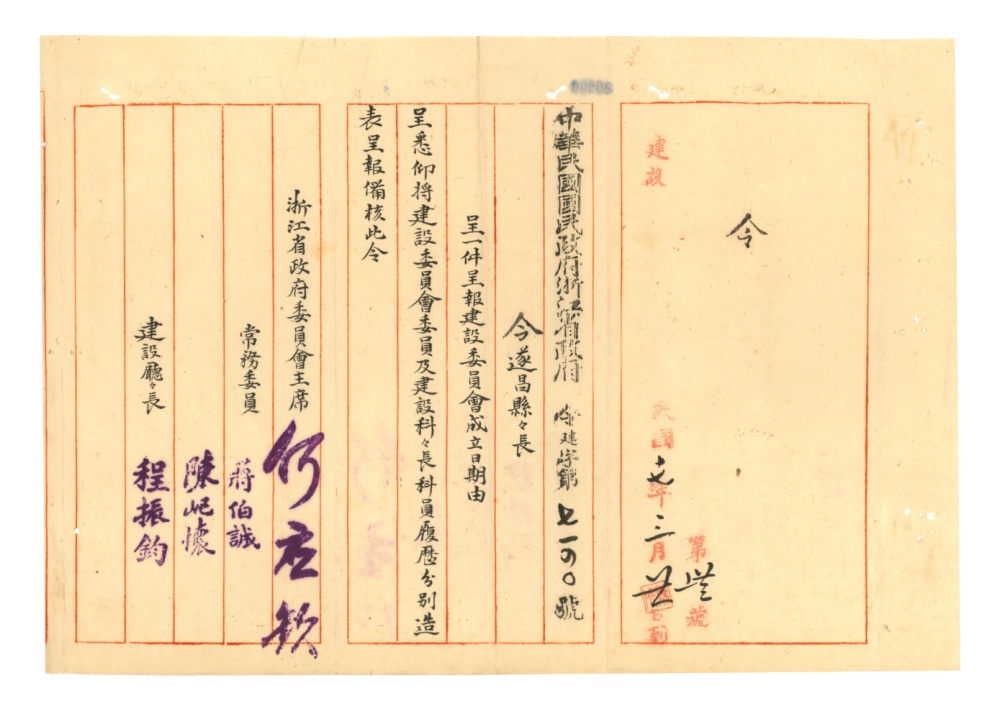 令
建設
民國十七年三月廿
第 號
中華民國國民政府浙江省政府 令建字第七一四〇號
令遂昌縣々長
呈一件呈報建設委員會成立日期由
呈悉仰將建設委員會委員及建設科々長科員履歷分別造
表呈報備核此令
浙江省政府委員會主席 何應欽
常務委員 蔣伯誠
陳屺懷
建設廳々長 程振鈞